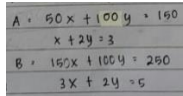 A = 50x + 100y = 150
x + 2y = 3
B = 150x + 100y = 250
3x + 2y = 5